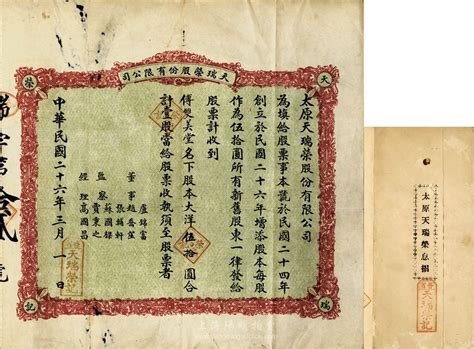 天瑞榮股份有限公司
天
榮
瑞
記
太原天瑞榮股份有限公司
為填給股票事本號於民國二十四年
創立於民國二十六年增添股本每股
作為伍拾圓所有新舊股東一律發給
股票計收到
傅雙美堂名下股本大洋伍拾圓合
計壹股當給股票收執須至股票者
盧錦富
董事趙
張輔軒
監察
蘇國保
經理高國昌
中華民國二十六年三月一日
瑞字第 貳號
太原天瑞榮息摺